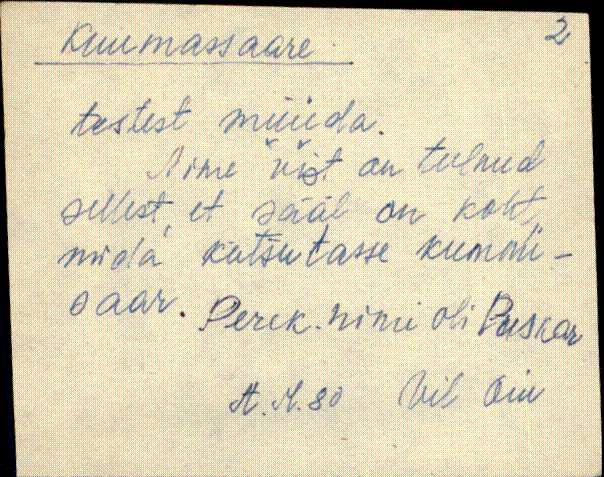 Kuumassaare
2
testest müüda.
Nime vist on tulnud
sellest, et sääl on koht,
mida kutsutasse kummi-
saar. Perek. nimi oli Puskar
A. M. 80 Vil